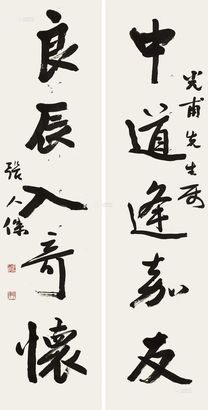 光甫先生属
中道逢嘉友
良辰入奇懷
張人傑